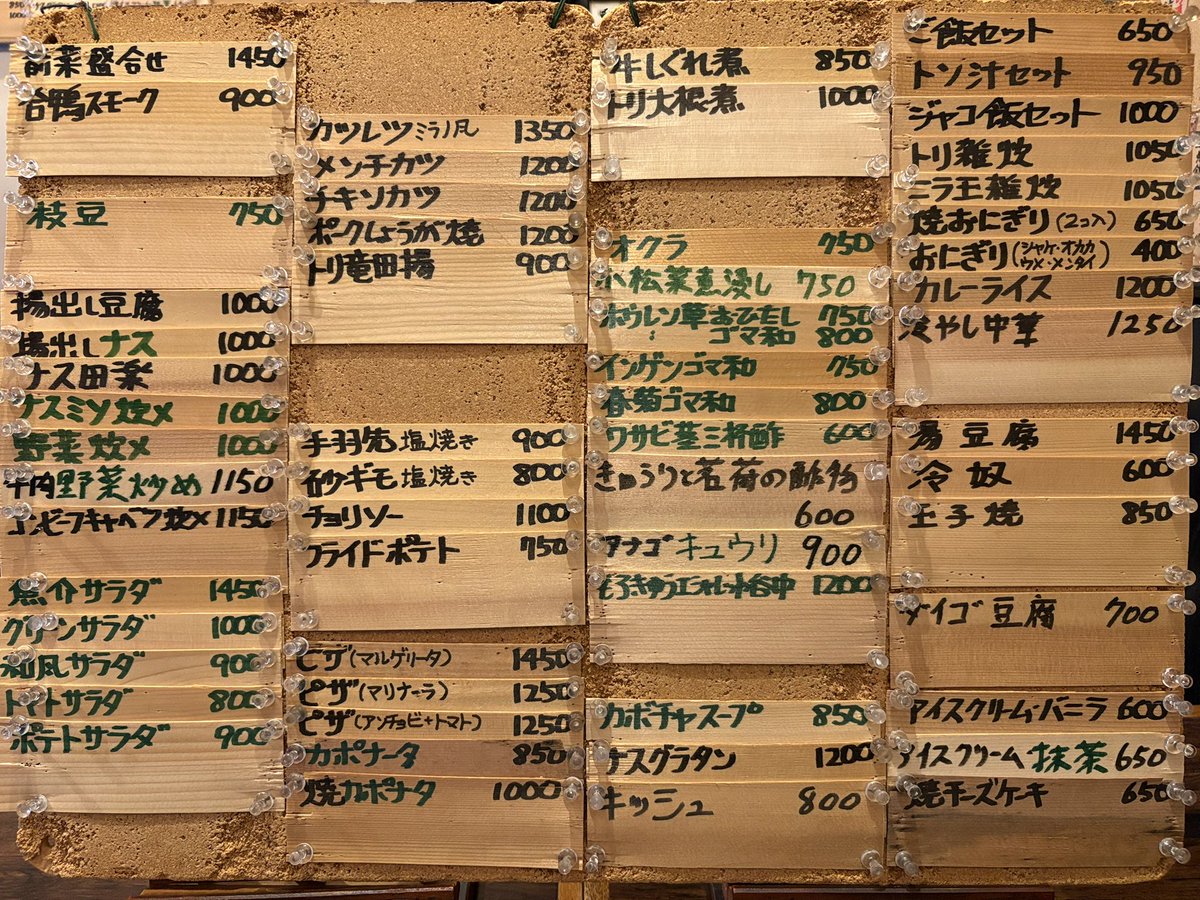 前菜盛合せ 1450
合鴨スモーク 900
枝豆 750
揚出し豆腐 1000
揚出しナス 1000
ナス田楽 1000
ナスミソ炊メ 1000
野菜炊メ 1000
牛肉野菜炒め 1150
コンビーフキャベツ炊メ 1150
魚介サラダ 1450
グリーンサラダ 1000
和風サラダ 900
トマトサラダ 800
ポテトサラダ 900
カツレツミラノ風 1350
メンチカツ 1200
チキンカツ 1200
ポークしょうが焼 1200
トリ竜田揚 900
手羽先塩焼き 900
砂ギモ塩焼き 800
チョリソー 1100
フライドポテト 750
ピザ(マルゲリータ) 1450
ピザ(マリナーラ) 1250
ピザ(アンチョビ+トマト) 1250
カポナータ 850
焼カポナタ 1000
牛しぐれ煮 850
トリ大根煮 1000
オクラ 750
小松菜煮浸し 750
ホウレン草おひたし 750
〃 ゴマ和 800
インゲンゴマ和 750
春菊ゴマ和 800
ワサビ茎三杯酢 600
きゅうりと茗荷の酢の物
600
アナゴキュウリ 900
もろきゅうエシャレット谷中 1200
カボチャスープ 850
ナスグラタン 1200
キッシュ 800
ご飯セット 650
トン汁セット 950
ジャコ飯セット 1000
トリ雑炊 1050
ニラ玉雑炊 1050
焼おにぎり(2コ入) 650
おにぎり(シャケ・オカカ ウメ・メンタイ) 400
カレーライス 1200
冷やし中華 1250
湯豆腐 1450
冷奴 600
玉子焼 850
ダイゴ豆腐 700
アイスクリーム・バニラ 600
アイスクリーム抹茶 650
焼チーズケーキ 650